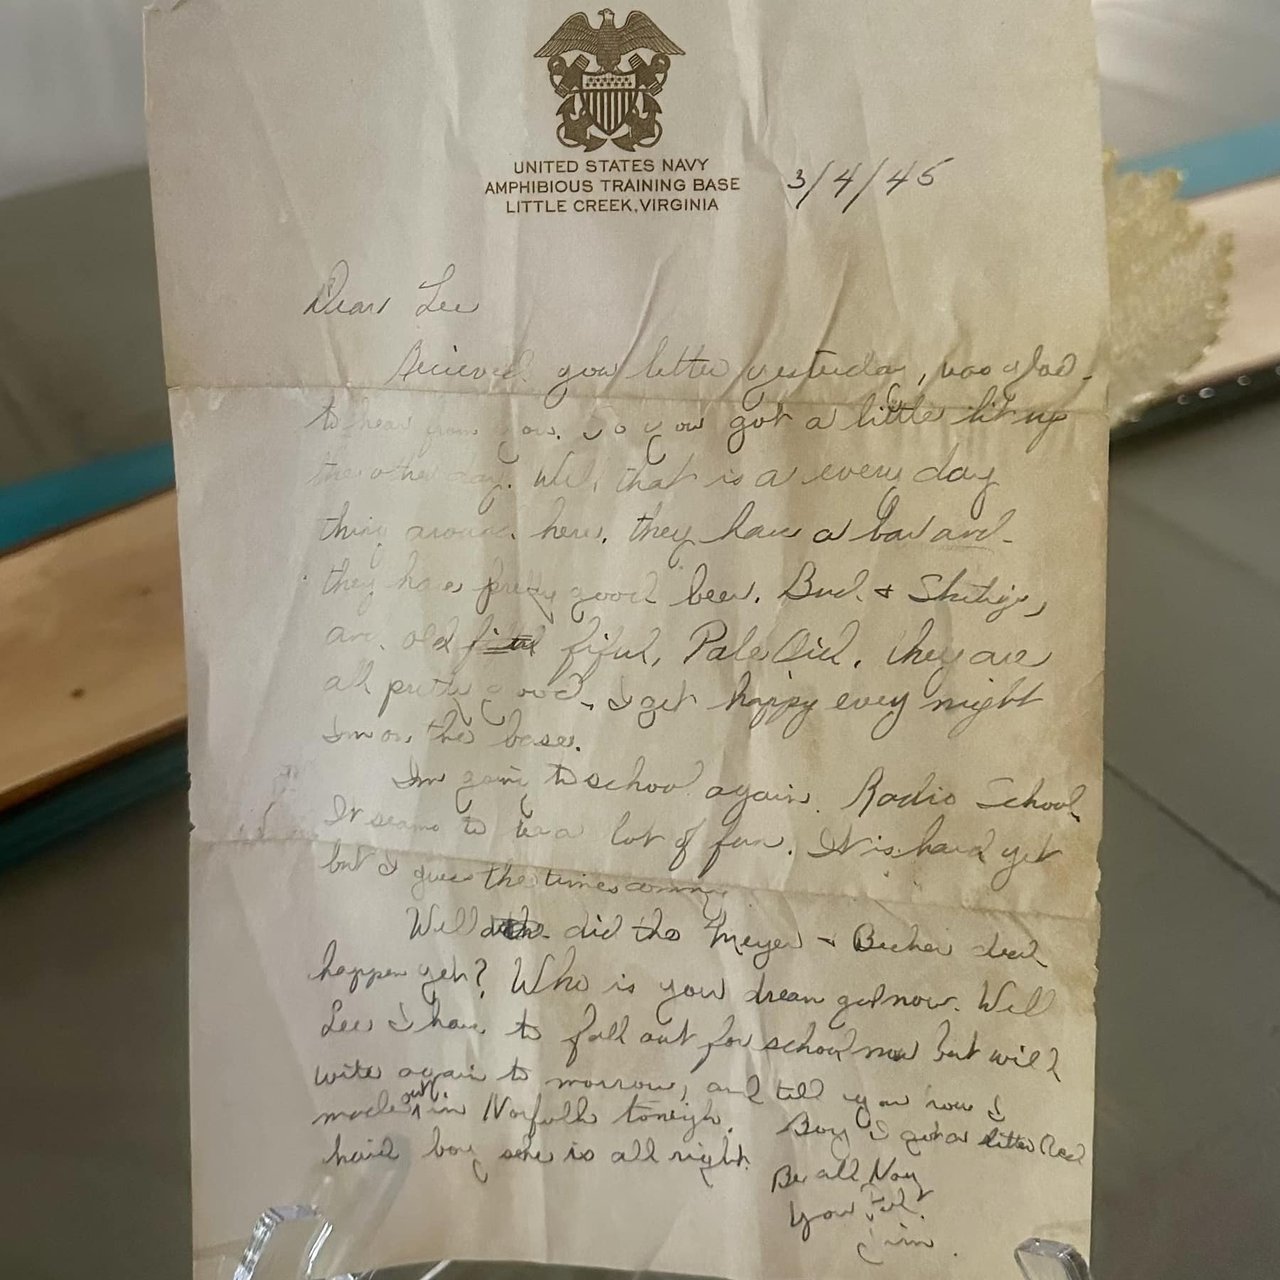 UNITED STATES NAVY
AMPHIBIOUS TRAINING BASE
LITTLE CREEK, VIRGINIA
3/4/45
Dear Lee
Recieved your letter yesterday, was glad
to hear from you. So you got a little lit up
the other day. Well that is a every day
thing around here, they have a bar and
they have pretty good beer. Bud. &
old fiful, Pale they are
all pretty good. I get happy every night
Im on the base.
Im going to school again. Radio School
It seams to be a lot of fun. It is hard yet
but I guess the times coming
Well did the Meyer & Becher deal
happen yet? Who is your dream gal now. Well
Lee I have to fall out for school now but will
write again to morrow, and tell you how I
made out in Norfolk tonigh. Boy I got a little Red
haid boy she is all right.
Be all Navy
Your Pal.
Jim.